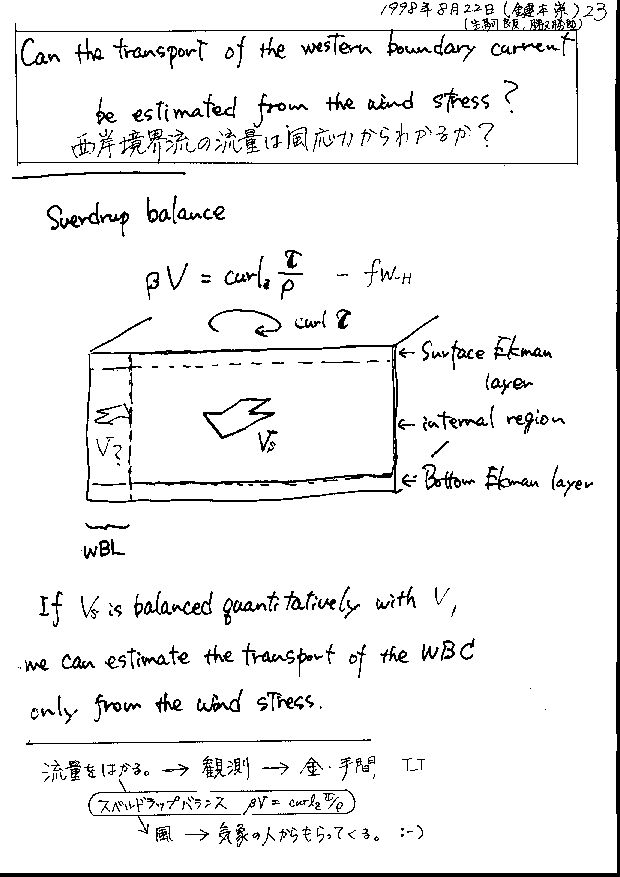 1998年8月22日(鍵本 崇) 23
Can the transport of the western boundary current
be estimated from the wind stress?
西岸境界流の流量は風応力からわかるか?
Sverdrup balance
βV = curl₂ τ/ρ - fw-H
curl τ
← Surface Ekman
layer
← internal region
← Bottom Ekman layer
V?
Vs
WBL
If Vs is balanced quantitatively with V,
we can estimate the transport of the WBC
only from the wind stress.
流量をはかる。→ 観測 → 金・手間 T_T
スベルドラップバランス βV = curl₂ τ/ρ
風 → 気象の人からもらってくる。 :-)